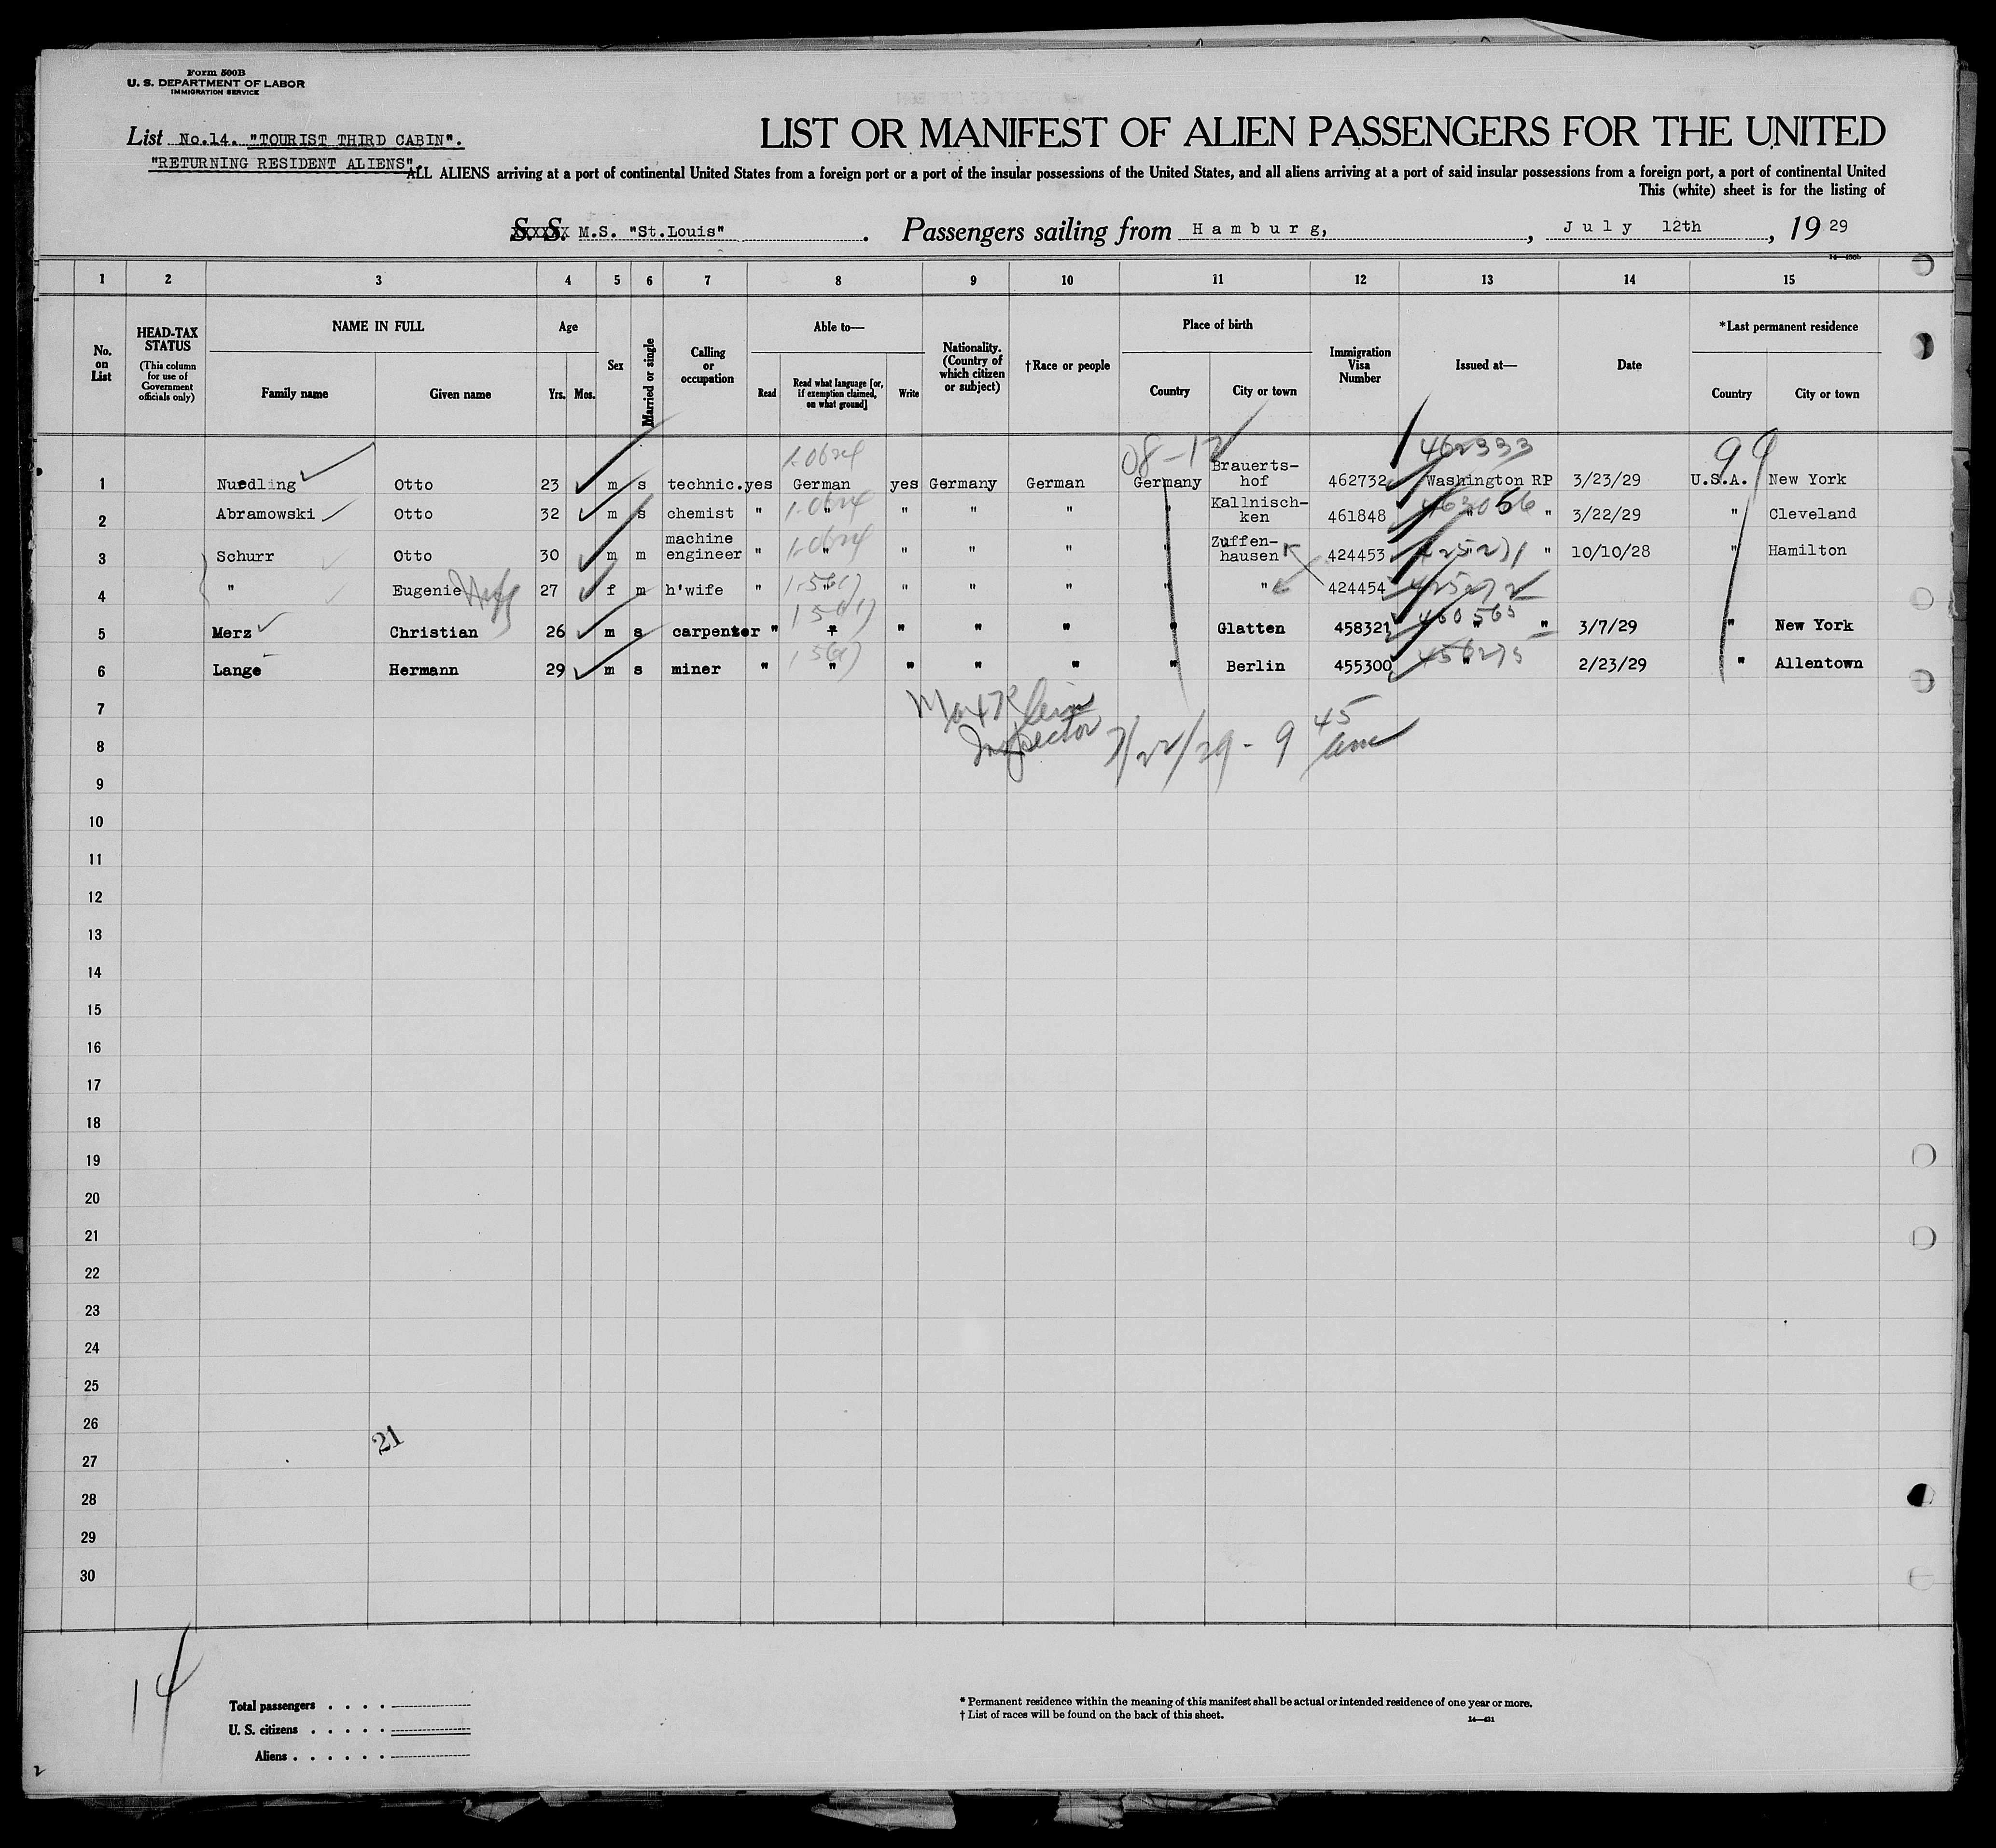 Form 500B
U. S. DEPARTMENT OF LABOR
IMMIGRATION SERVICE
List No.14. "TOURIST THIRD CABIN".
"RETURNING RESIDENT ALIENS".
LIST OR MANIFEST OF ALIEN PASSENGERS FOR THE UNITED
ALL ALIENS arriving at a port of continental United States from a foreign port or a port of the insular possessions of the United States, and all aliens arriving at a port of said insular possessions from a foreign port, a port of continental United
This (white) sheet is for the listing of
S. S. M.S. "St.Louis" . Passengers sailing from Hamburg, , July 12th , 19 29
1 2 3 4 5 6 7 8 9 10 11 12 13 14 15
No. on List
HEAD-TAX STATUS
(This column for use of Government officials only)
NAME IN FULL
Family name Given name
Age
Yrs. Mos.
Sex
Married or single
Calling or occupation
Able to—
Read
Read what language [or, if exemption claimed, on what ground]
Write
Nationality. (Country of which citizen or subject)
†Race or people
Place of birth
Country City or town
Immigration Visa Number
Issued at—
Date
*Last permanent residence
Country City or town
08-12 462333 99
1 Nuedling Otto 23 m s technic. yes German yes Germany German Germany Brauerts-hof 462732 Washington RP 3/23/29 U.S.A. New York
2 Abramowski Otto 32 m s chemist " " " " " " Kallnisch-ken 461848 " " 3/22/29 " Cleveland
3 Schurr Otto 30 m m machine engineer " " " " " " Zuffen-hausen 424453 " " 10/10/28 " Hamilton
4 " Eugenie 27 f m h'wife " " " " " " " 424454
5 Merz Christian 26 m s carpenter " " " " " " Glatten 458321 460565 " " 3/7/29 " New York
6 Lange Hermann 29 m s miner " " " " " " Berlin 455300 " 2/23/29 " Allentown
7
Max Klein
Inspector 7/22/29 - 9 45 am
8
9
10
11
12
13
14
15
16
17
18
19
20
21
22
23
24
25
26
21
27
28
29
30
14
Total passengers . . . .
U. S. citizens . . . . .
Aliens . . . . . .
* Permanent residence within the meaning of this manifest shall be actual or intended residence of one year or more.
† List of races will be found on the back of this sheet.
14—431
2